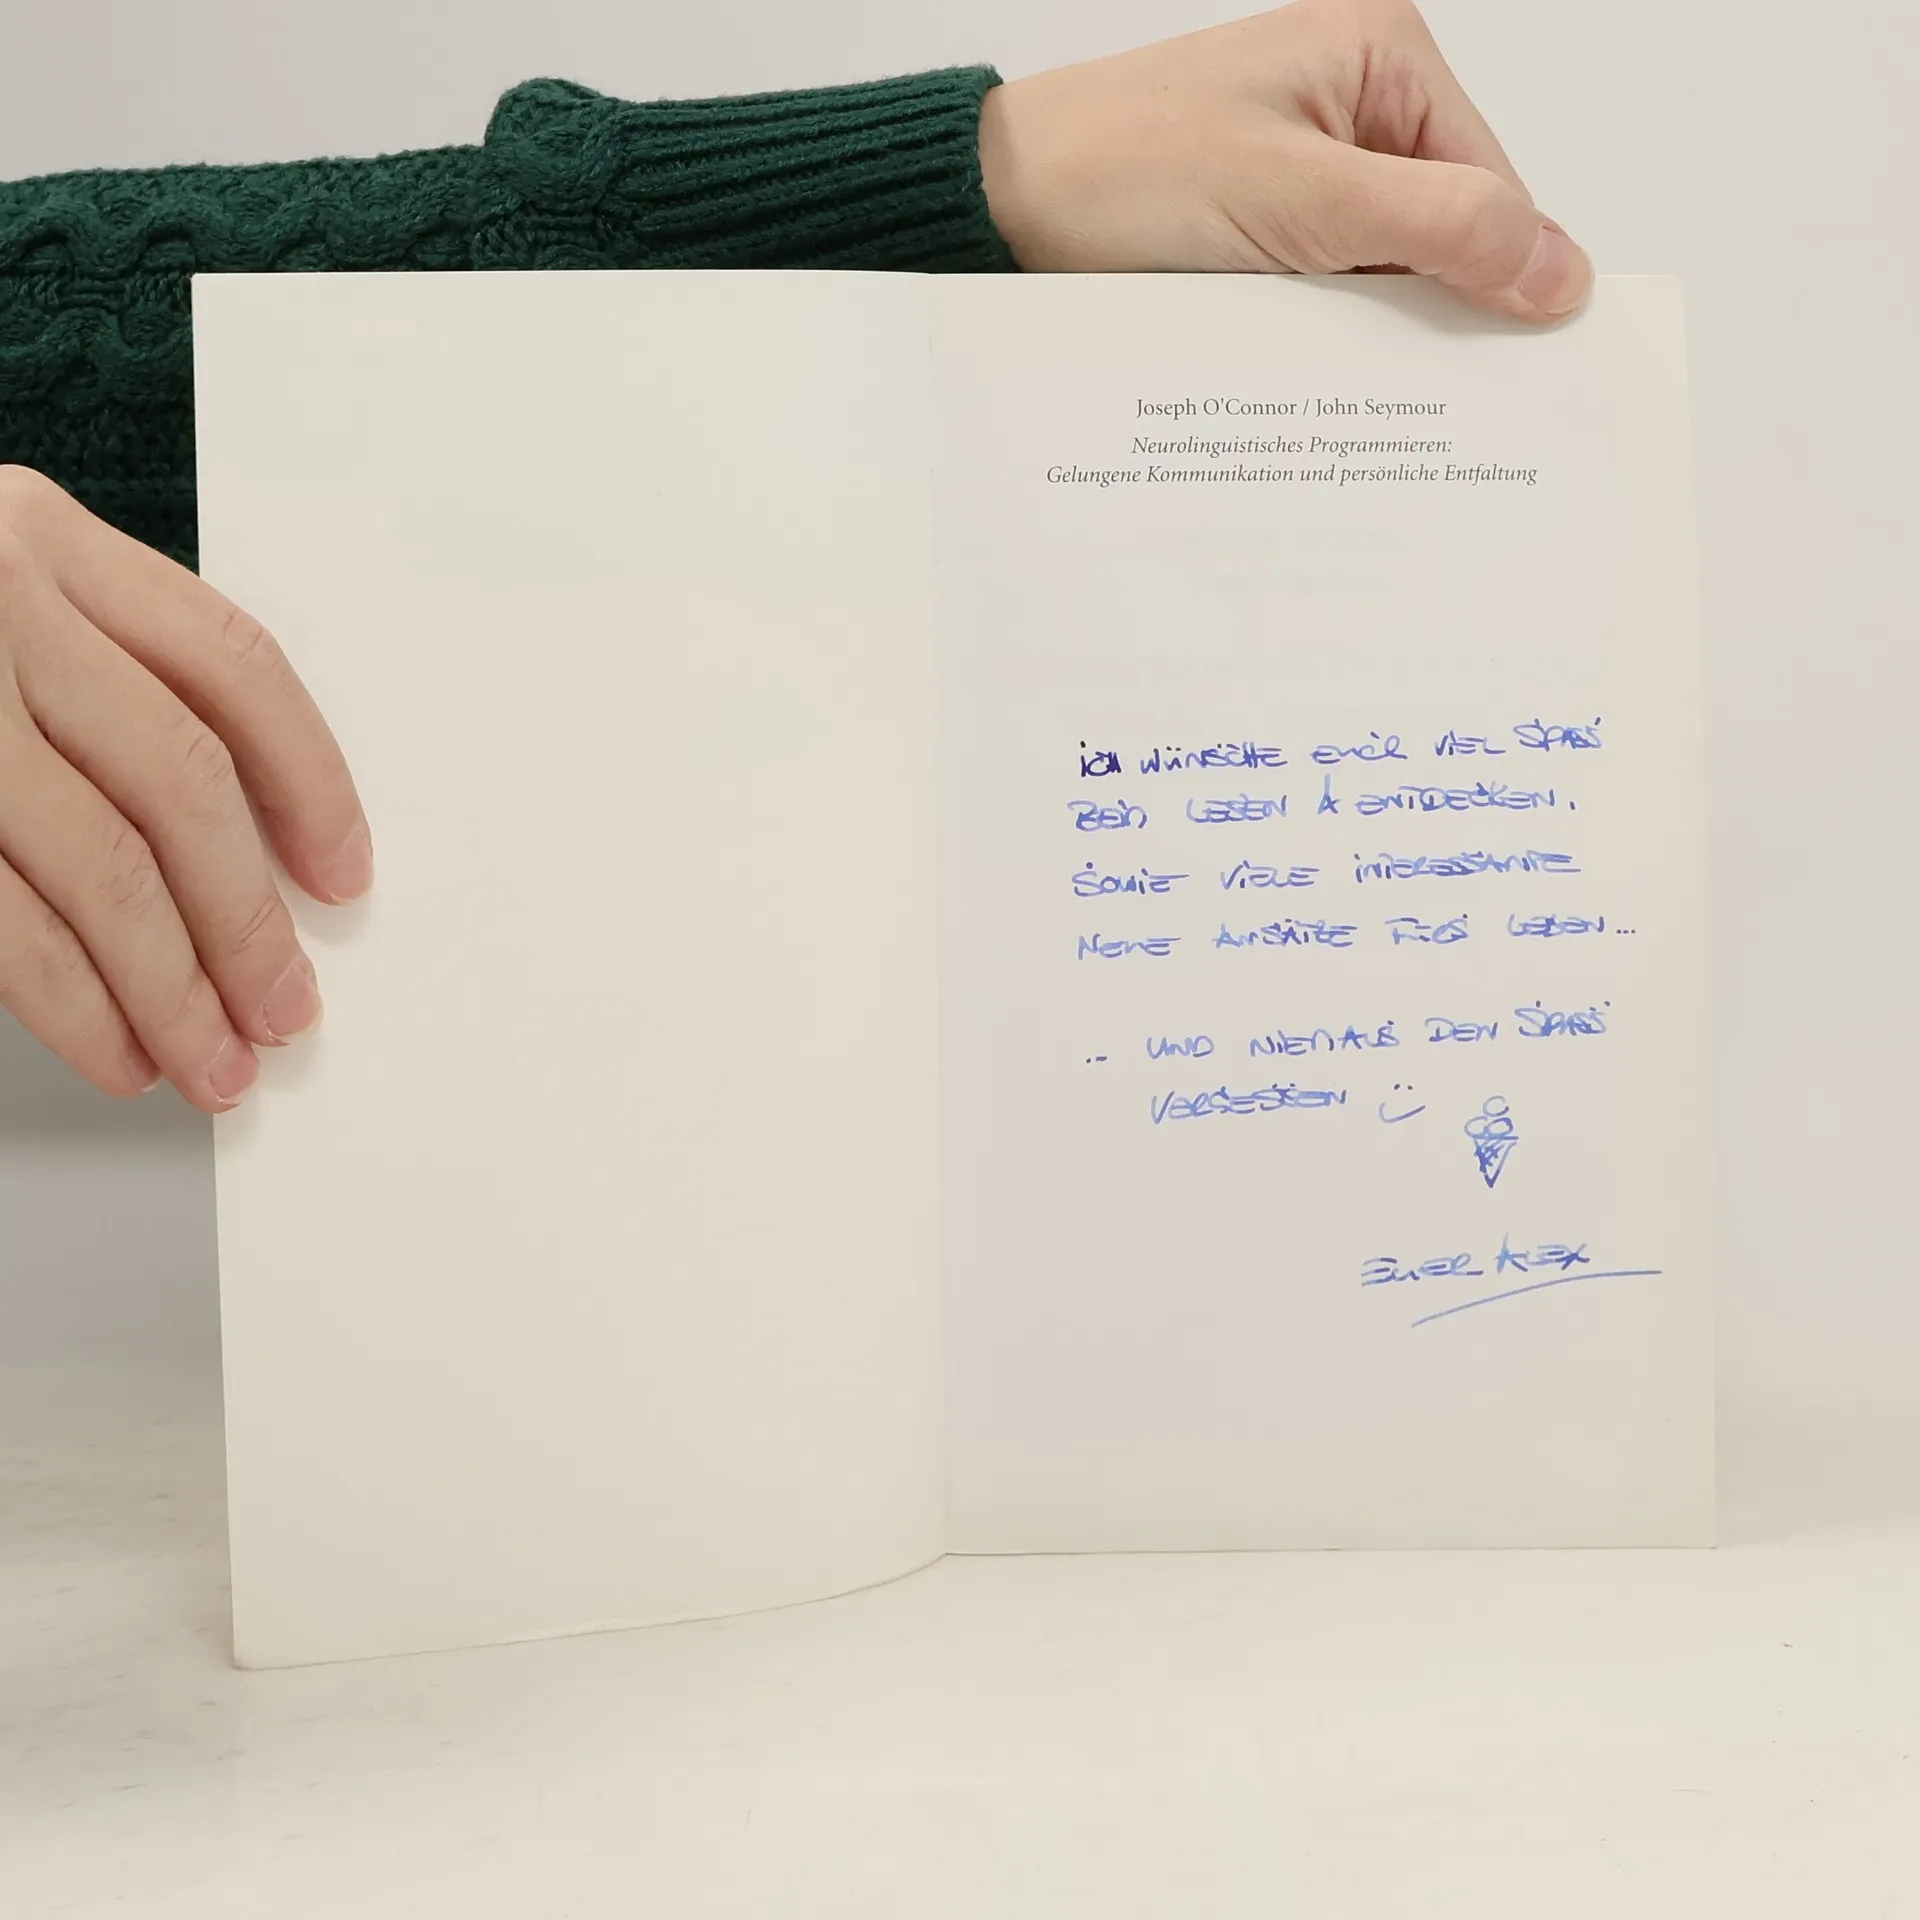 Joseph O'Connor / John Seymour
Neurolinguistisches Programmieren:
Gelungene Kommunikation und persönliche Entfaltung
ICH WÜNSCHE EUCH VIEL SPASS
BEIM LESEN & ENTDECKEN.
SOWIE VIELE INTERESSANTE
NEUE ANSÄTZE FÜRS LEBEN...
.. UND NIEMALS DEN SPASS
VERGESSEN
EUER ALEX